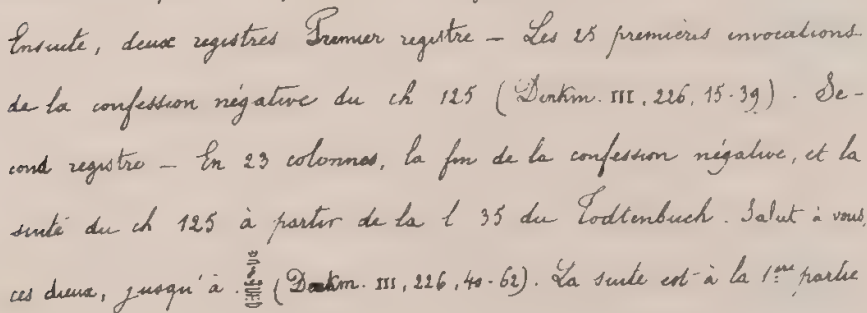 Ensuite, deux registres Premier registre — Les 25 premières invocations
de la confession négative du ch 125 (Denkm. III, 226, 15-39). Se-
cond registre — En 23 colonnes, la fin de la confession négative, et la
suite du ch 125 à partir de la l 35 du Todtenbuch. Salut à vous,
ces dieux, jusqu'à (Denkm. III, 226, 40-62). La suite est à la 1ère partie